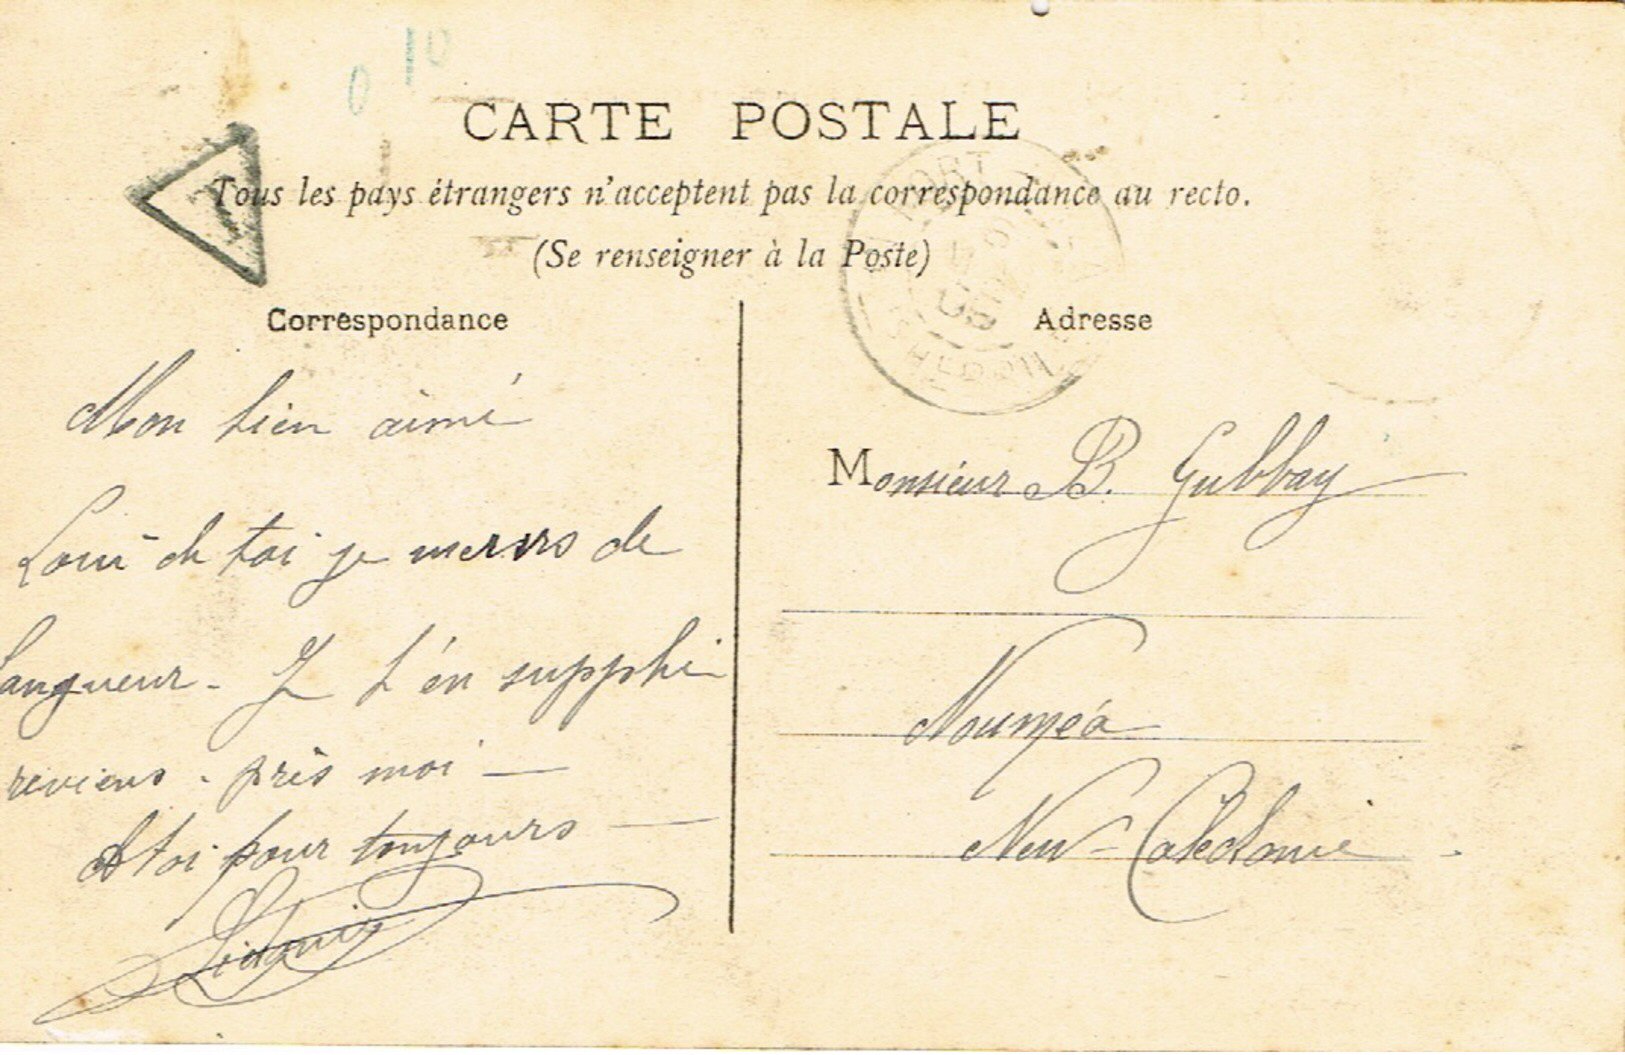 0 10
CARTE POSTALE
T
Tous les pays étrangers n'acceptent pas la correspondance au recto.
(Se renseigner à la Poste)
Correspondance
Mon bien aimé
Loin de toi je meurs de
langueur - Je t'en supplie
reviens - près moi —
A toi pour toujours —
Adresse
Monsieur B. Gubbay
Nouméa
New-Calédonie